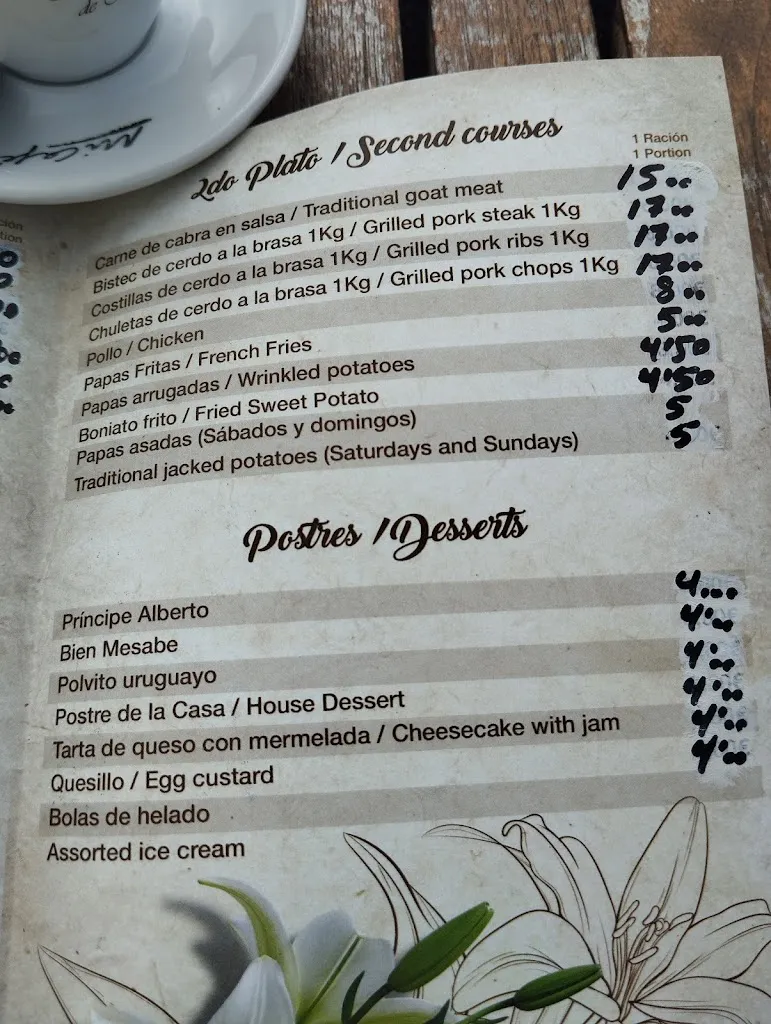 de
Mi Café
2do Plato / Second courses
1 Ración
1 Portion
Carne de cabra en salsa / Traditional goat meat 15,00
Bistec de cerdo a la brasa 1Kg / Grilled pork steak 1Kg 17,00
Costillas de cerdo a la brasa 1Kg / Grilled pork ribs 1Kg 17,00
Chuletas de cerdo a la brasa 1Kg / Grilled pork chops 1Kg 17,00
Pollo / Chicken 8,00
Papas Fritas / French Fries 5,00
Papas arrugadas / Wrinkled potatoes 4'50
Boniato frito / Fried Sweet Potato 4'50
Papas asadas (Sábados y domingos) 5
Traditional jacked potatoes (Saturdays and Sundays) 5
Postres / Desserts
Príncipe Alberto 4,00
Bien Mesabe 4'00
Polvito uruguayo 4'00
Postre de la Casa / House Dessert 4'00
Tarta de queso con mermelada / Cheesecake with jam 4'00
Quesillo / Egg custard 4'00
Bolas de helado
Assorted ice cream